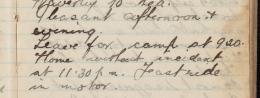 Waverley to tea.
Pleasant afternoon &
evening.
Leave for camp at 9.20.
Home without incident
at 11.30 p.m. Fast ride
in motor.